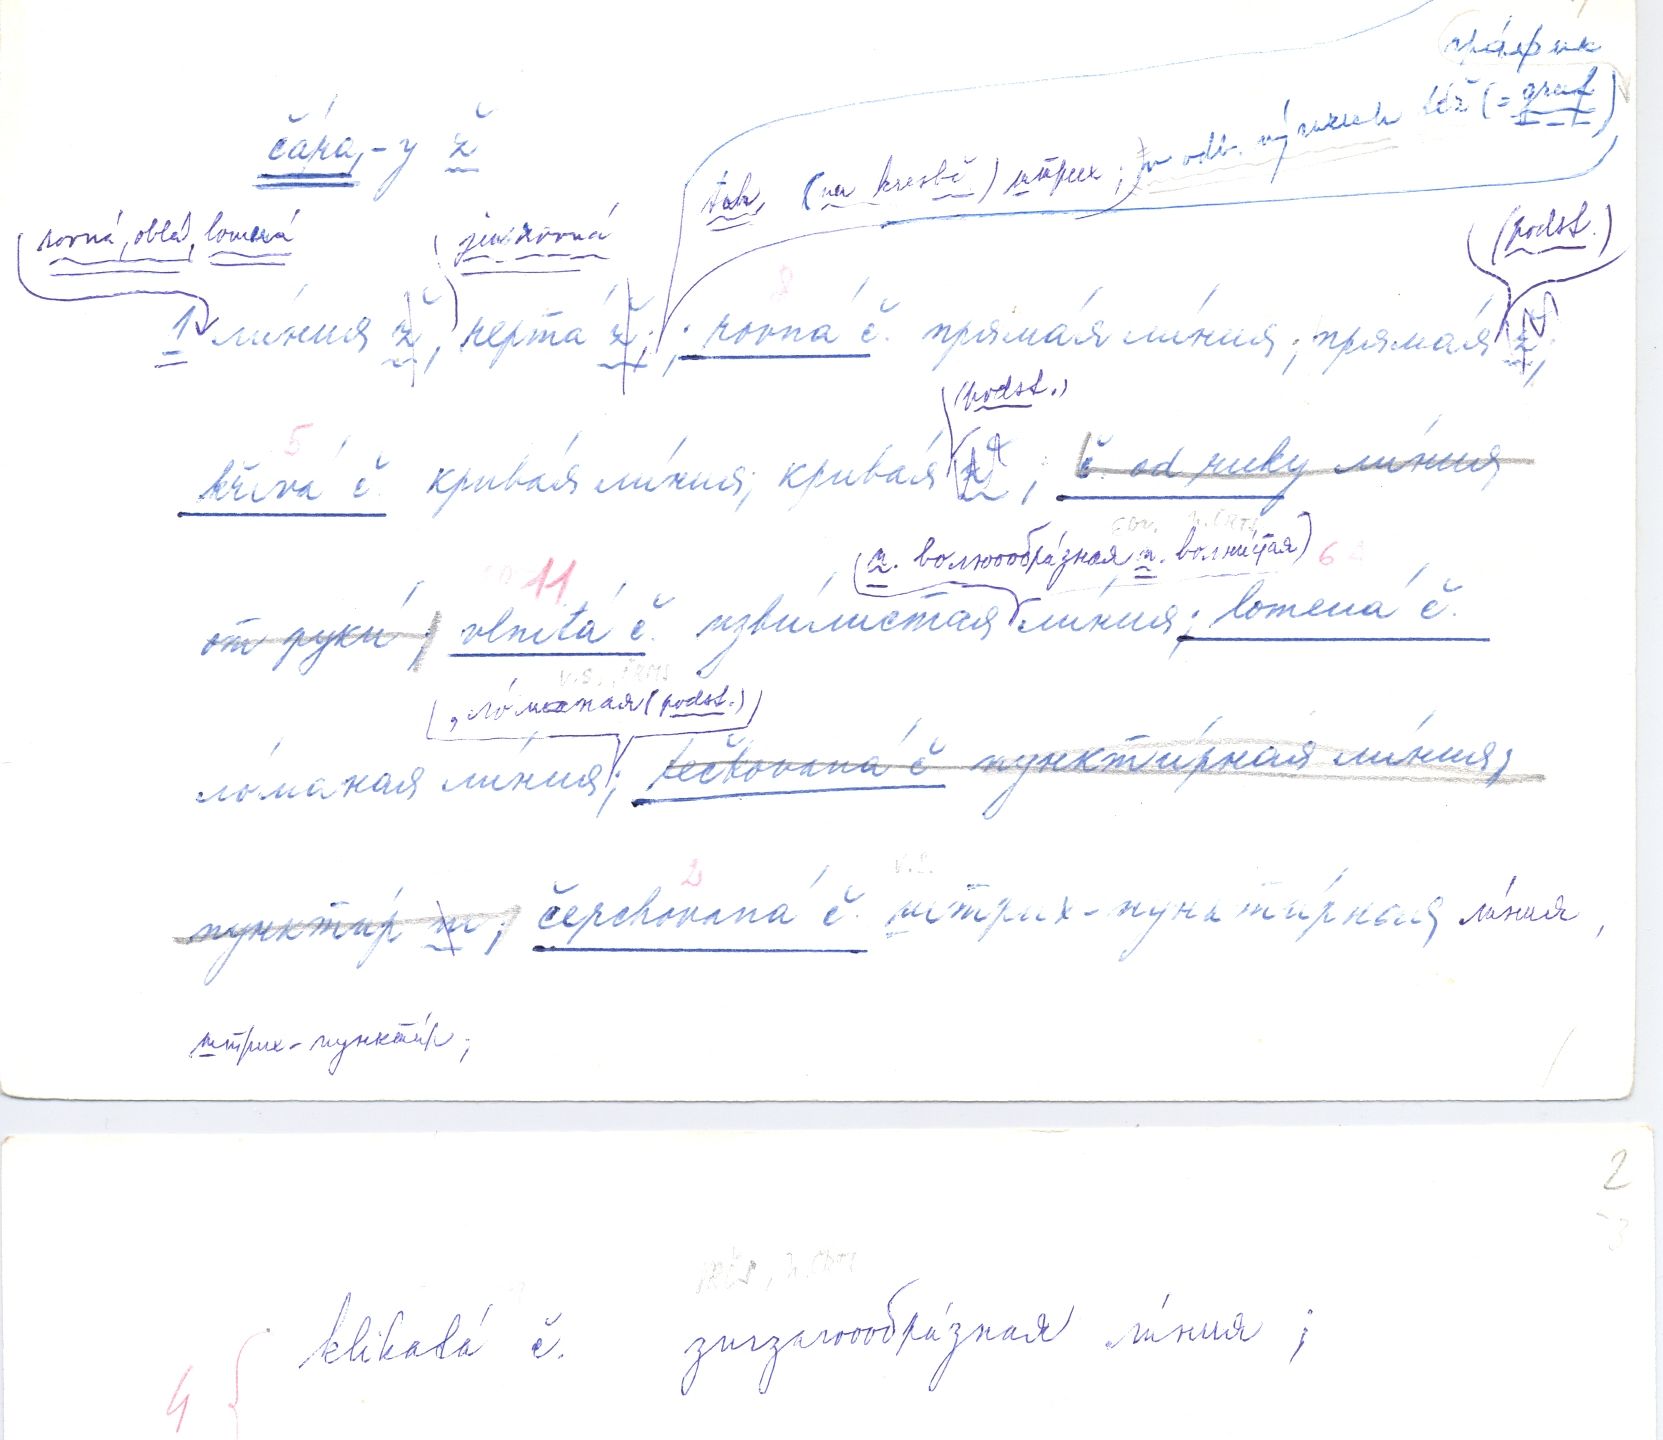 гра́фик
čára, -y ž
též (= graf)
tah, (na kresbě) штрих; v odb. výrazech
rovná, oblá, lomená
jen rovná
(podst.)
8
1 ли́ния ž, черта́ ž; ; rovná č. пряма́я ли́ния; пряма́я ž;
(podst.)
5
křivá č. крива́я ли́ния; крива́я ž; č. od ruky ли́ния
(п. волнообра́зная п. волни́стая) 6
11
от руки́; vlnitá č. изви́листая ли́ния; lomená č.
, ло́маная (podst.)
ло́маная ли́ния; tečkovaná č. пункти́рная ли́ния,
2
пункти́р m; čerchovaná č. штрих-пункти́рная ли́ния,
штрих-пункти́р;
2
3
klikatá č. зигзагообра́зная ли́ния;
4